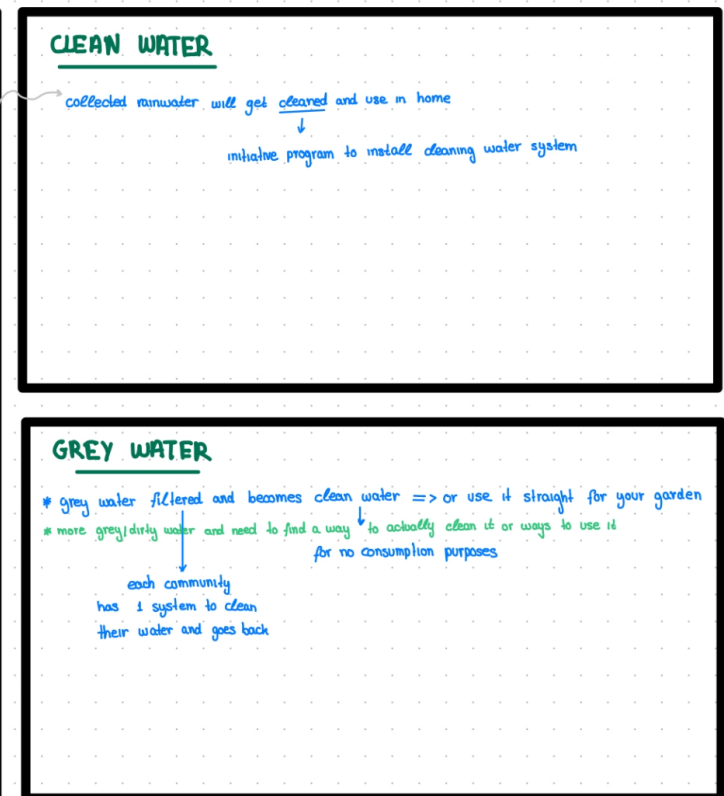 CLEAN WATER
collected rainwater will get cleaned and use in home
↓
initiative program to install cleaning water system
GREY WATER
* grey water filtered and becomes clean water => or use it straight for your garden
* more grey/dirty water and need to find a way to actually clean it or ways to use it
for no consumption purposes
each community
has 1 system to clean
their water and goes back